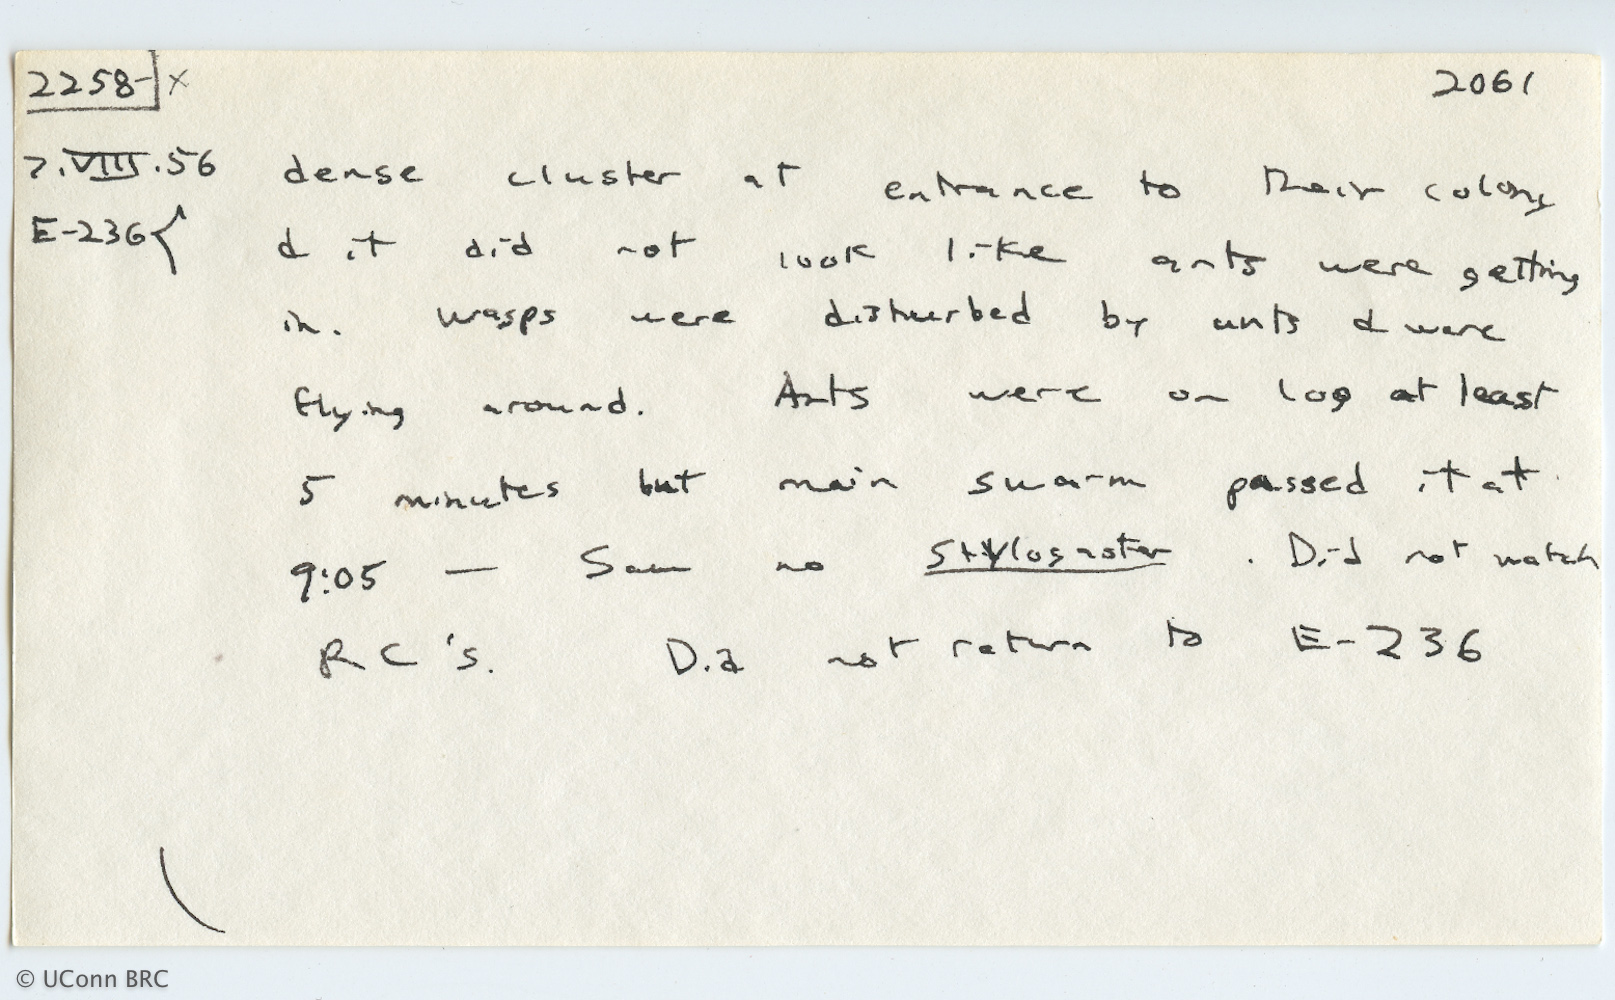 2258- x 2061
7.VIII.56 dense cluster at entrance to their colony
E-236 & it did not look like ants were getting
in. Wasps were disturbed by ants & were
flying around. Ants were on log at least
5 minutes but main swarm passed it at
9:05 — Saw no Stylogaster. Did not watch
RC's. Did not return to E-236
© UConn BRC